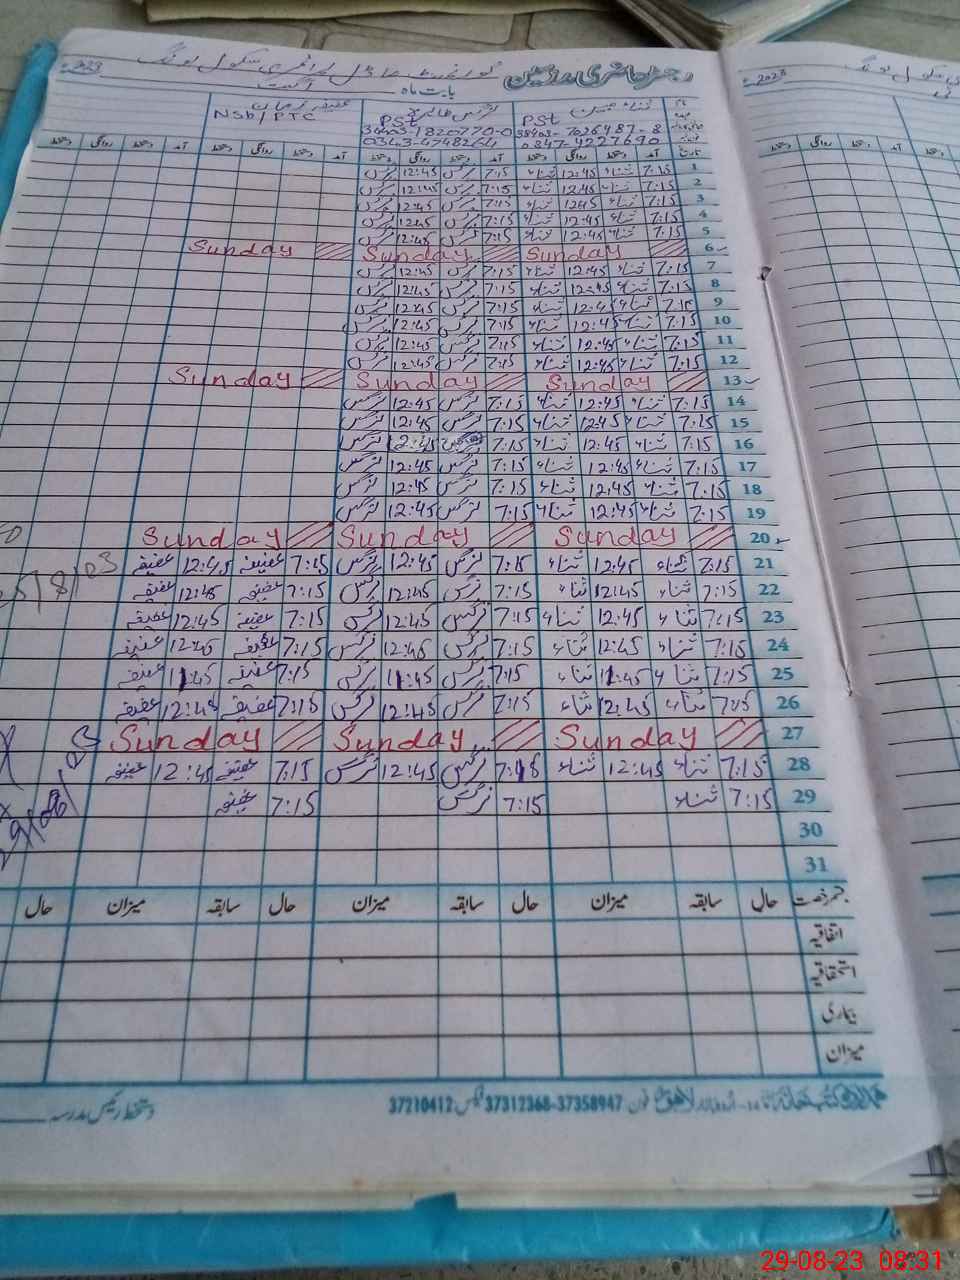 رجسٹر حاضری مدرسین گورنمنٹ ماڈل پرائمری سکول
بابت ماہ اگست 2023ء
ثناء PSt
نرگس PSt
عفیفہ NSb/PTC
0343-4748264
تاریخ آمد دستخط روانگی دستخط آمد دستخط روانگی دستخط آمد دستخط روانگی دستخط
1 7:15 ثناء 12:45 ثناء 7:15 نرگس 12:45 نرگس
2 7:15 ثناء 12:45 ثناء 7:15 نرگس 12:45 نرگس
3 7:15 ثناء 1245 ثناء 7:15 نرگس 12:45 نرگس
4 7:15 ثناء 12:45 ثناء 7:15 نرگس 12:45 نرگس
5 7:15 ثناء 12:45 ثناء 7:15 نرگس 12:45 نرگس
6 Sunday Sunday Sunday
7 7:15 ثناء 12:45 ثناء 7:15 نرگس 12:45 نرگس
8 7:15 ثناء 12:45 ثناء 7:15 نرگس 12:45 نرگس
9 7:15 ثناء 12:45 ثناء 7:15 نرگس 12:45 نرگس
10 7:15 ثناء 12:45 ثناء 7:15 نرگس 12:45 نرگس
11 7:15 ثناء 12:45 ثناء 7:15 نرگس 12:45 نرگس
12 7:15 ثناء 12:45 ثناء 7:15 نرگس 12:45 نرگس
13 Sunday Sunday Sunday
14 7:15 ثناء 12:45 ثناء 7:15 نرگس 12:45 نرگس
15 7:15 ثناء 12:45 ثناء 7:15 نرگس 12:45 نرگس
16 7:15 ثناء 12:45 ثناء 7:15 نرگس 12:45 نرگس
17 7:15 ثناء 12:45 ثناء 7:15 نرگس 12:45 نرگس
18 7:15 ثناء 12:45 ثناء 7:15 نرگس 12:45 نرگس
19 7:15 ثناء 12:45 ثناء 7:15 نرگس 12:45 نرگس
20 Sunday Sunday Sunday
21 7:15 ثناء 12:45 ثناء 7:15 نرگس 12:45 نرگس 7:15 عفیفہ 12:45 عفیفہ
22 7:15 ثناء 12:45 ثناء 7:15 نرگس 12:45 نرگس 7:15 عفیفہ 12:45 عفیفہ
23 7:15 ثناء 12:45 ثناء 7:15 نرگس 12:45 نرگس 7:15 عفیفہ 12:45 عفیفہ
24 7:15 ثناء 12:45 ثناء 7:15 نرگس 12:45 نرگس 7:15 عفیفہ 12:45 عفیفہ
25 7:15 ثناء 11:45 ثناء 7:15 نرگس 11:45 نرگس 7:15 عفیفہ 11:45 عفیفہ
26 ثناء 12:45 ثناء 7:15 نرگس 12:45 نرگس 7:15 عفیفہ 12:45 عفیفہ
27 Sunday Sunday Sunday
28 7:15 ثناء 12:45 ثناء 7:15 نرگس 12:45 نرگس 7:15 عفیفہ 12:45 عفیفہ
29 7:15 ثناء 7:15 نرگس 7:15 عفیفہ
30
31
قسم رخصت حال سابقہ میزان حال سابقہ میزان حال سابقہ میزان حال
اتفاقیہ
استحقاقیہ
بیماری
میزان
لاہور فون 37312368-37358947 فیکس 37210412 دستخط رئیس مدرسہ
2023ء
29-08-23 08:31